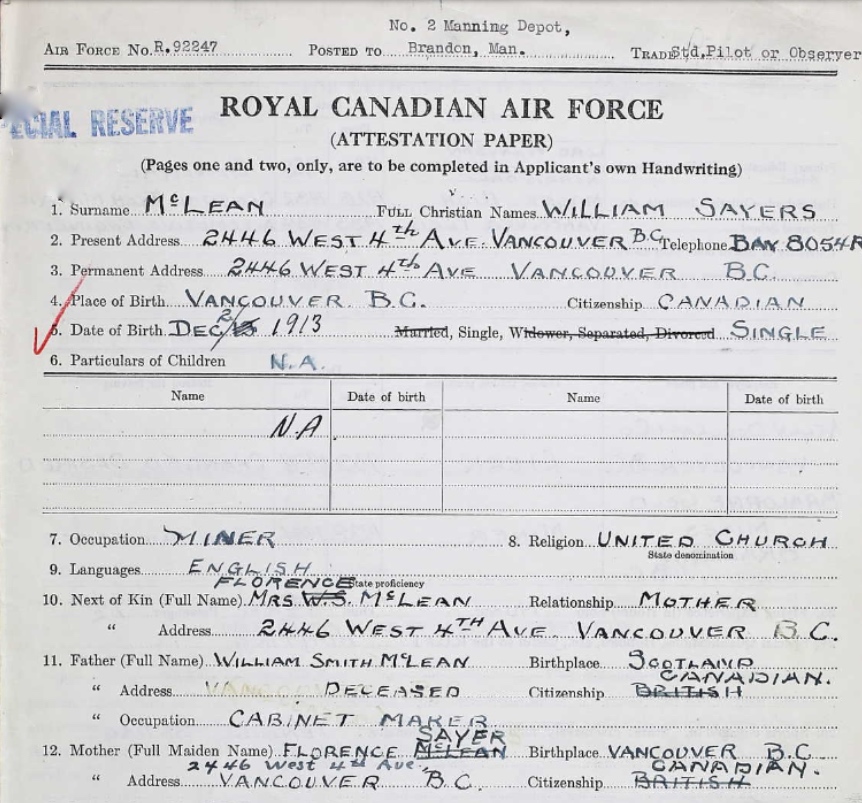 No. 2 Manning Depot,
AIR FORCE No. R.92247 POSTED TO Brandon, Man. TRADE Std, Pilot or Observer
ECIAL RESERVE
ROYAL CANADIAN AIR FORCE
(ATTESTATION PAPER)
(Pages one and two, only, are to be completed in Applicant's own Handwriting)
1. Surname McLEAN FULL Christian Names WILLIAM SAYERS
2. Present Address 2446 WEST 4th AVE. VANCOUVER B.C. Telephone BAY 8054R
3. Permanent Address 2446 WEST 4th AVE VANCOUVER B.C.
4. Place of Birth VANCOUVER B.C. Citizenship CANADIAN
5. Date of Birth DEC 1913 Married, Single, Widower, Separated, Divorced SINGLE
6. Particulars of Children N.A.
Name Date of birth Name Date of birth
N.A
7. Occupation MINER 8. Religion UNITED CHURCH
State denomination
9. Languages ENGLISH
State proficiency
FLORENCE
10. Next of Kin (Full Name) MRS W.S. McLEAN Relationship MOTHER
" Address 2446 WEST 4TH AVE VANCOUVER B.C.
11. Father (Full Name) WILLIAM SMITH McLEAN Birthplace SCOTLAND
CANADIAN.
" Address VANCOUVER DECEASED Citizenship BRITISH
" Occupation CABINET MAKER
SAYER
12. Mother (Full Maiden Name) FLORENCE McLEAN Birthplace VANCOUVER B.C.
2446 West 4th Ave., CANADIAN.
" Address VANCOUVER B.C. Citizenship BRITISH